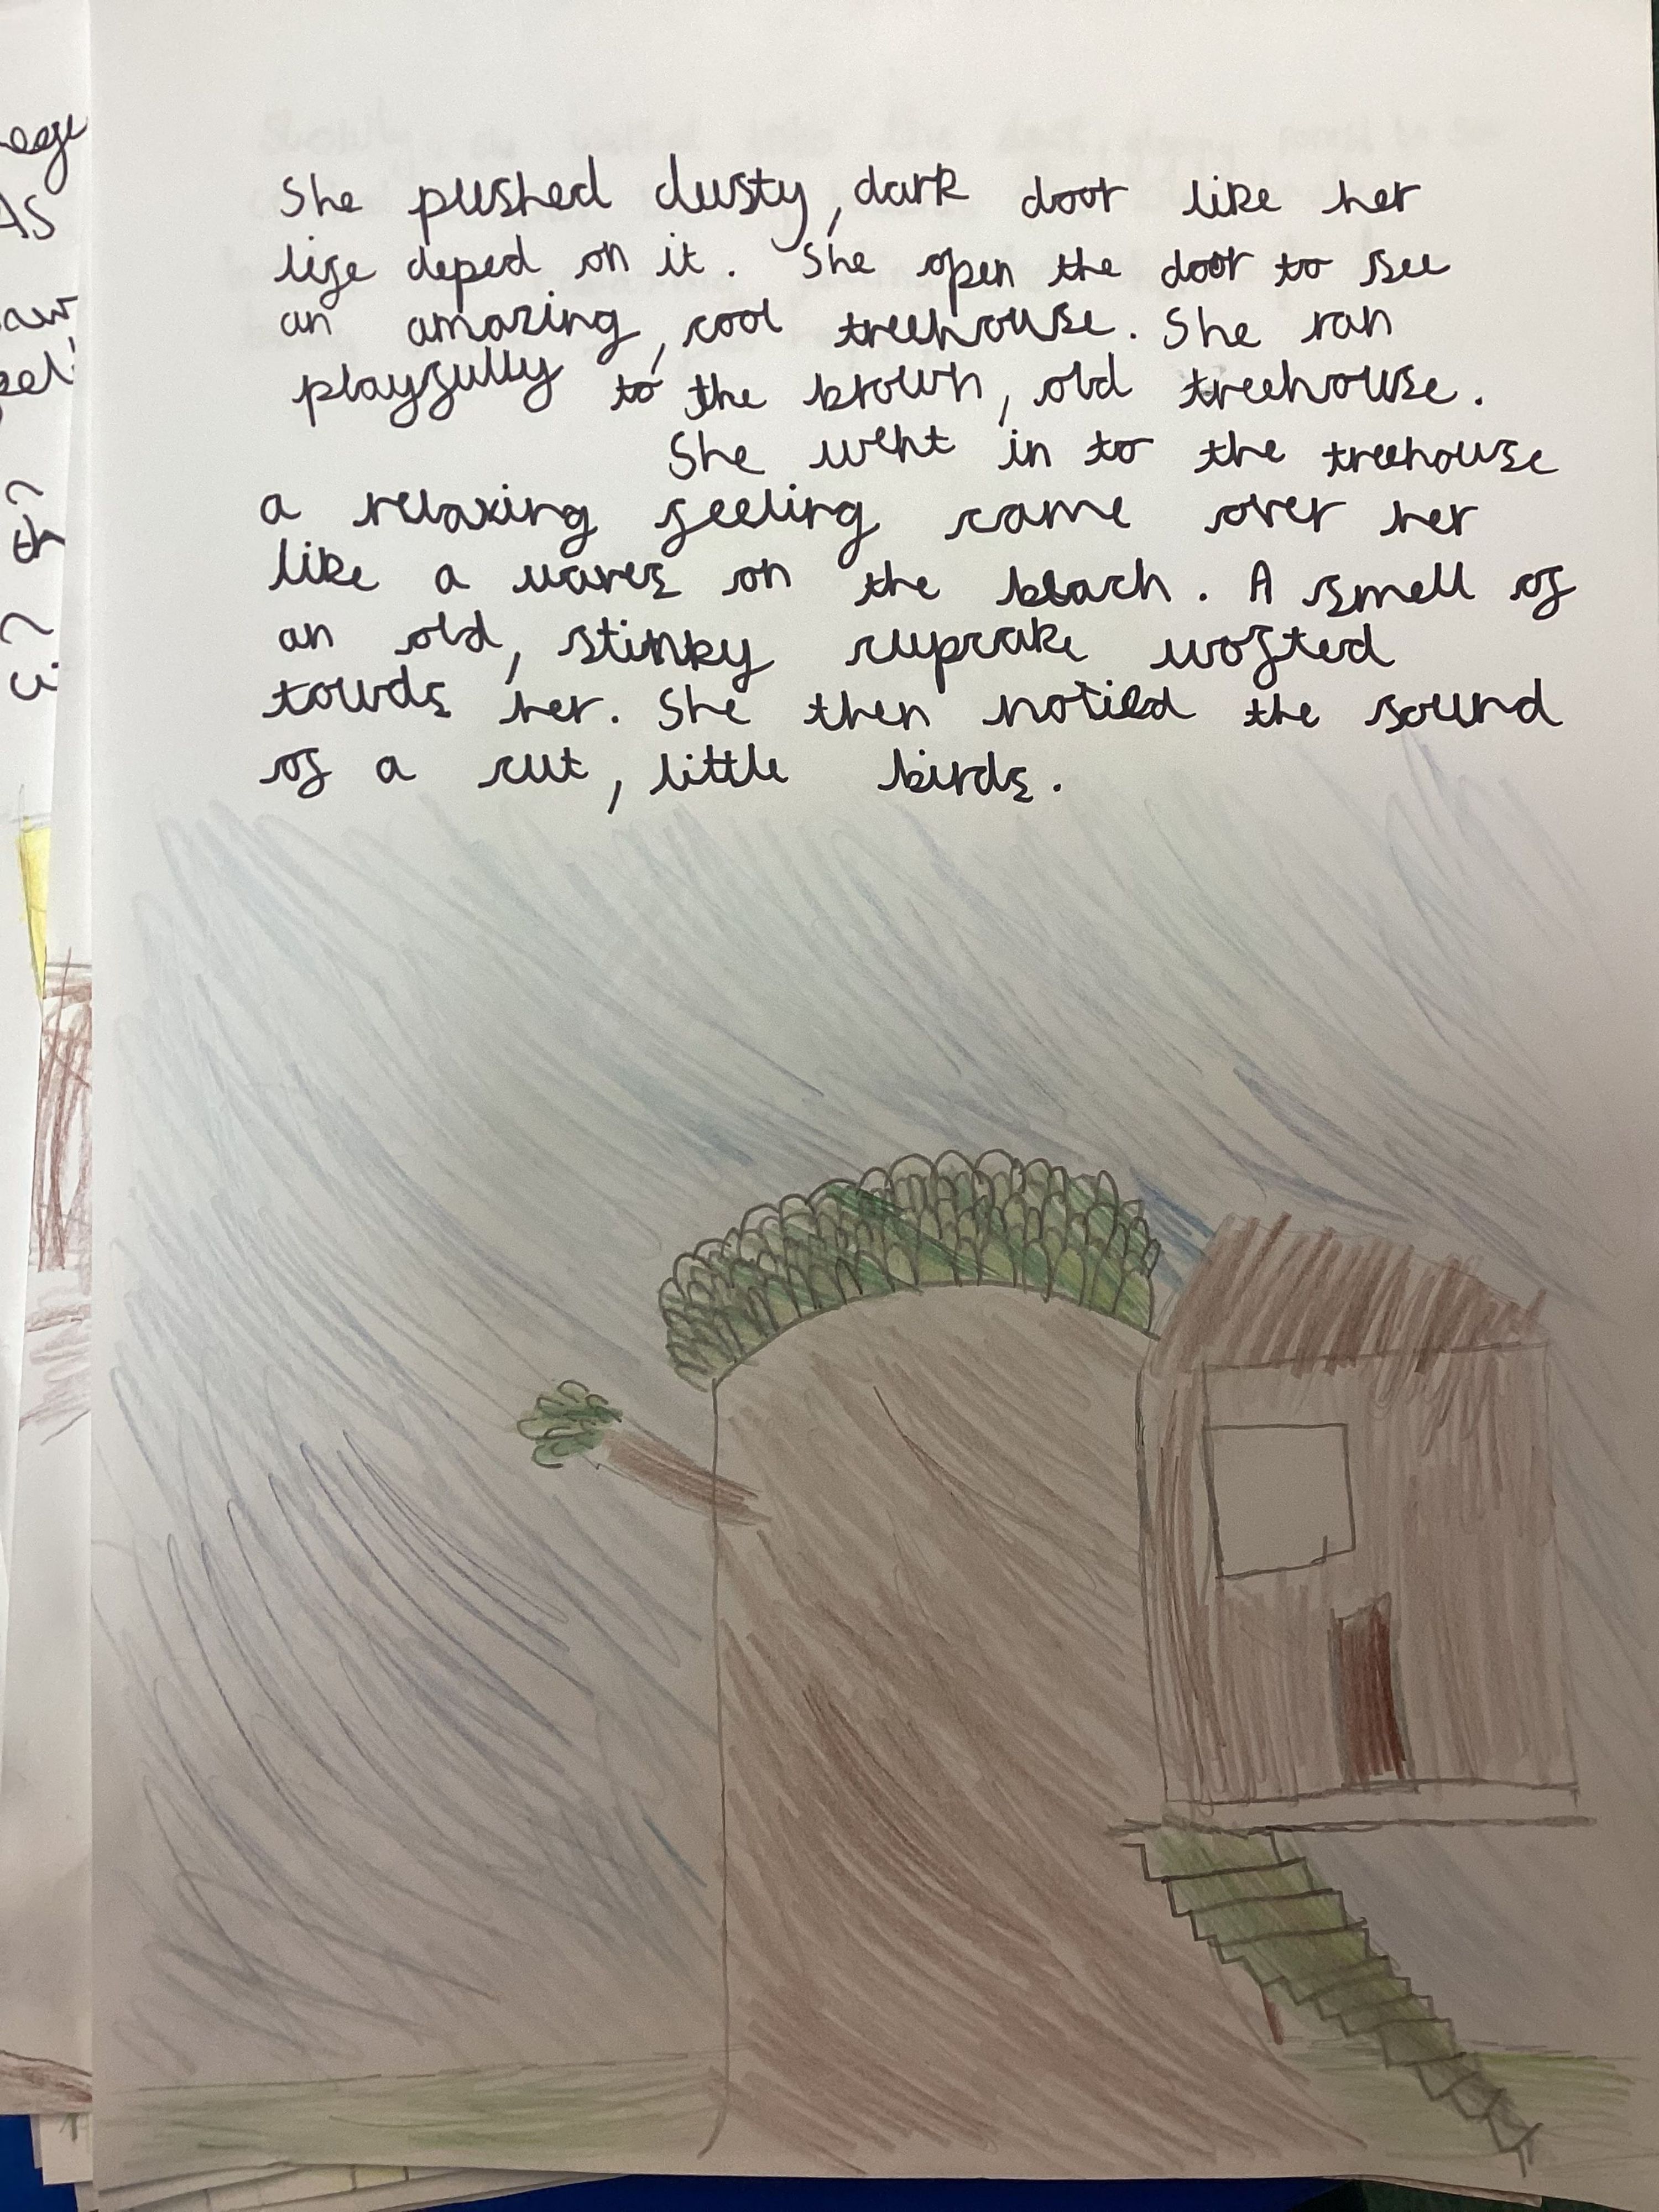 She pushed dusty, dark door like her
life deped on it. She open the door to see
an amazing, cool treehouse. She ran
playfully to the brown, old treehouse.
She went in to the treehouse
a relaxing feeling came over her
like a waves on the beach. A smell of
an old, stinky cupcake wofted
towds her. She then notied the sound
of a cut, little birds.